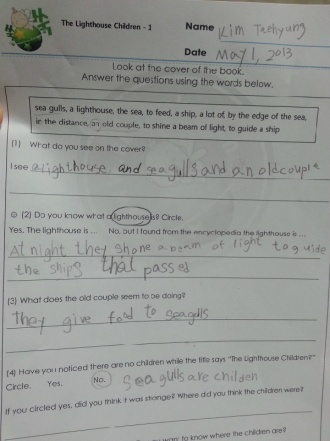 The Lighthouse Children - 1
Name Kim Taehyung
Date May 1, 2013
Look at the cover of the book.
Answer the questions using the words below.
sea gulls, a lighthouse, the sea, to feed, a ship, a lot of, by the edge of the sea,
in the distance, an old couple, to shine a beam of light, to guide a ship
(1) What do you see on the cover?
I see a lighthouse and seagulls and an old couple
(2) Do you know what a lighthouse is? Circle.
Yes. The lighthouse is ... No, but I found from the encyclopedia the lighthouse is ...
At night they shone a beam of light to guide
the ships that passed
(3) What does the old couple seem to be doing?
they give food to seagulls
(4) Have you noticed there are no children while the title says "The Lighthouse Children?"
Circle. Yes. No. Seagulls are childen
If you circled yes, did you think it was strange? Where did you think the children were?
want to know where the children are?